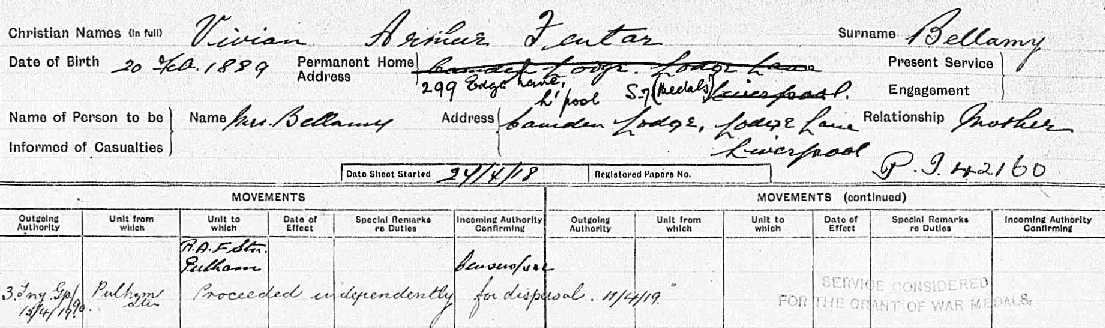 Christian Names (in full) Vivian Arthur Fentar Surname Bellamy
Date of Birth 20 Feb. 1889 Permanent Home Address Camden Lodge. Lodge Lane Liverpool. Present Service Engagement
299 Edge Lane, L'pool S.7 (Medals)
Name of Person to be Informed of Casualties Name Mrs. Bellamy Address Camden Lodge, Lodge Lane Relationship Mother
Liverpool
P.I. 42160
Date Sheet Started 24/4/18 Registered Papers No.
MOVEMENTS MOVEMENTS (continued)
Outgoing Authority Unit from which Unit to which Date of Effect Special Remarks re Duties Incoming Authority Confirming Outgoing Authority Unit from which Unit to which Date of Effect Special Remarks re Duties Incoming Authority Confirming
R.A.F. Stn.
Pulham
3. Tng Gp/ Pulham Proceeded independently for disposal. 11/4/19
SERVICE CONSIDERED
FOR THE GRANT OF WAR MEDALS